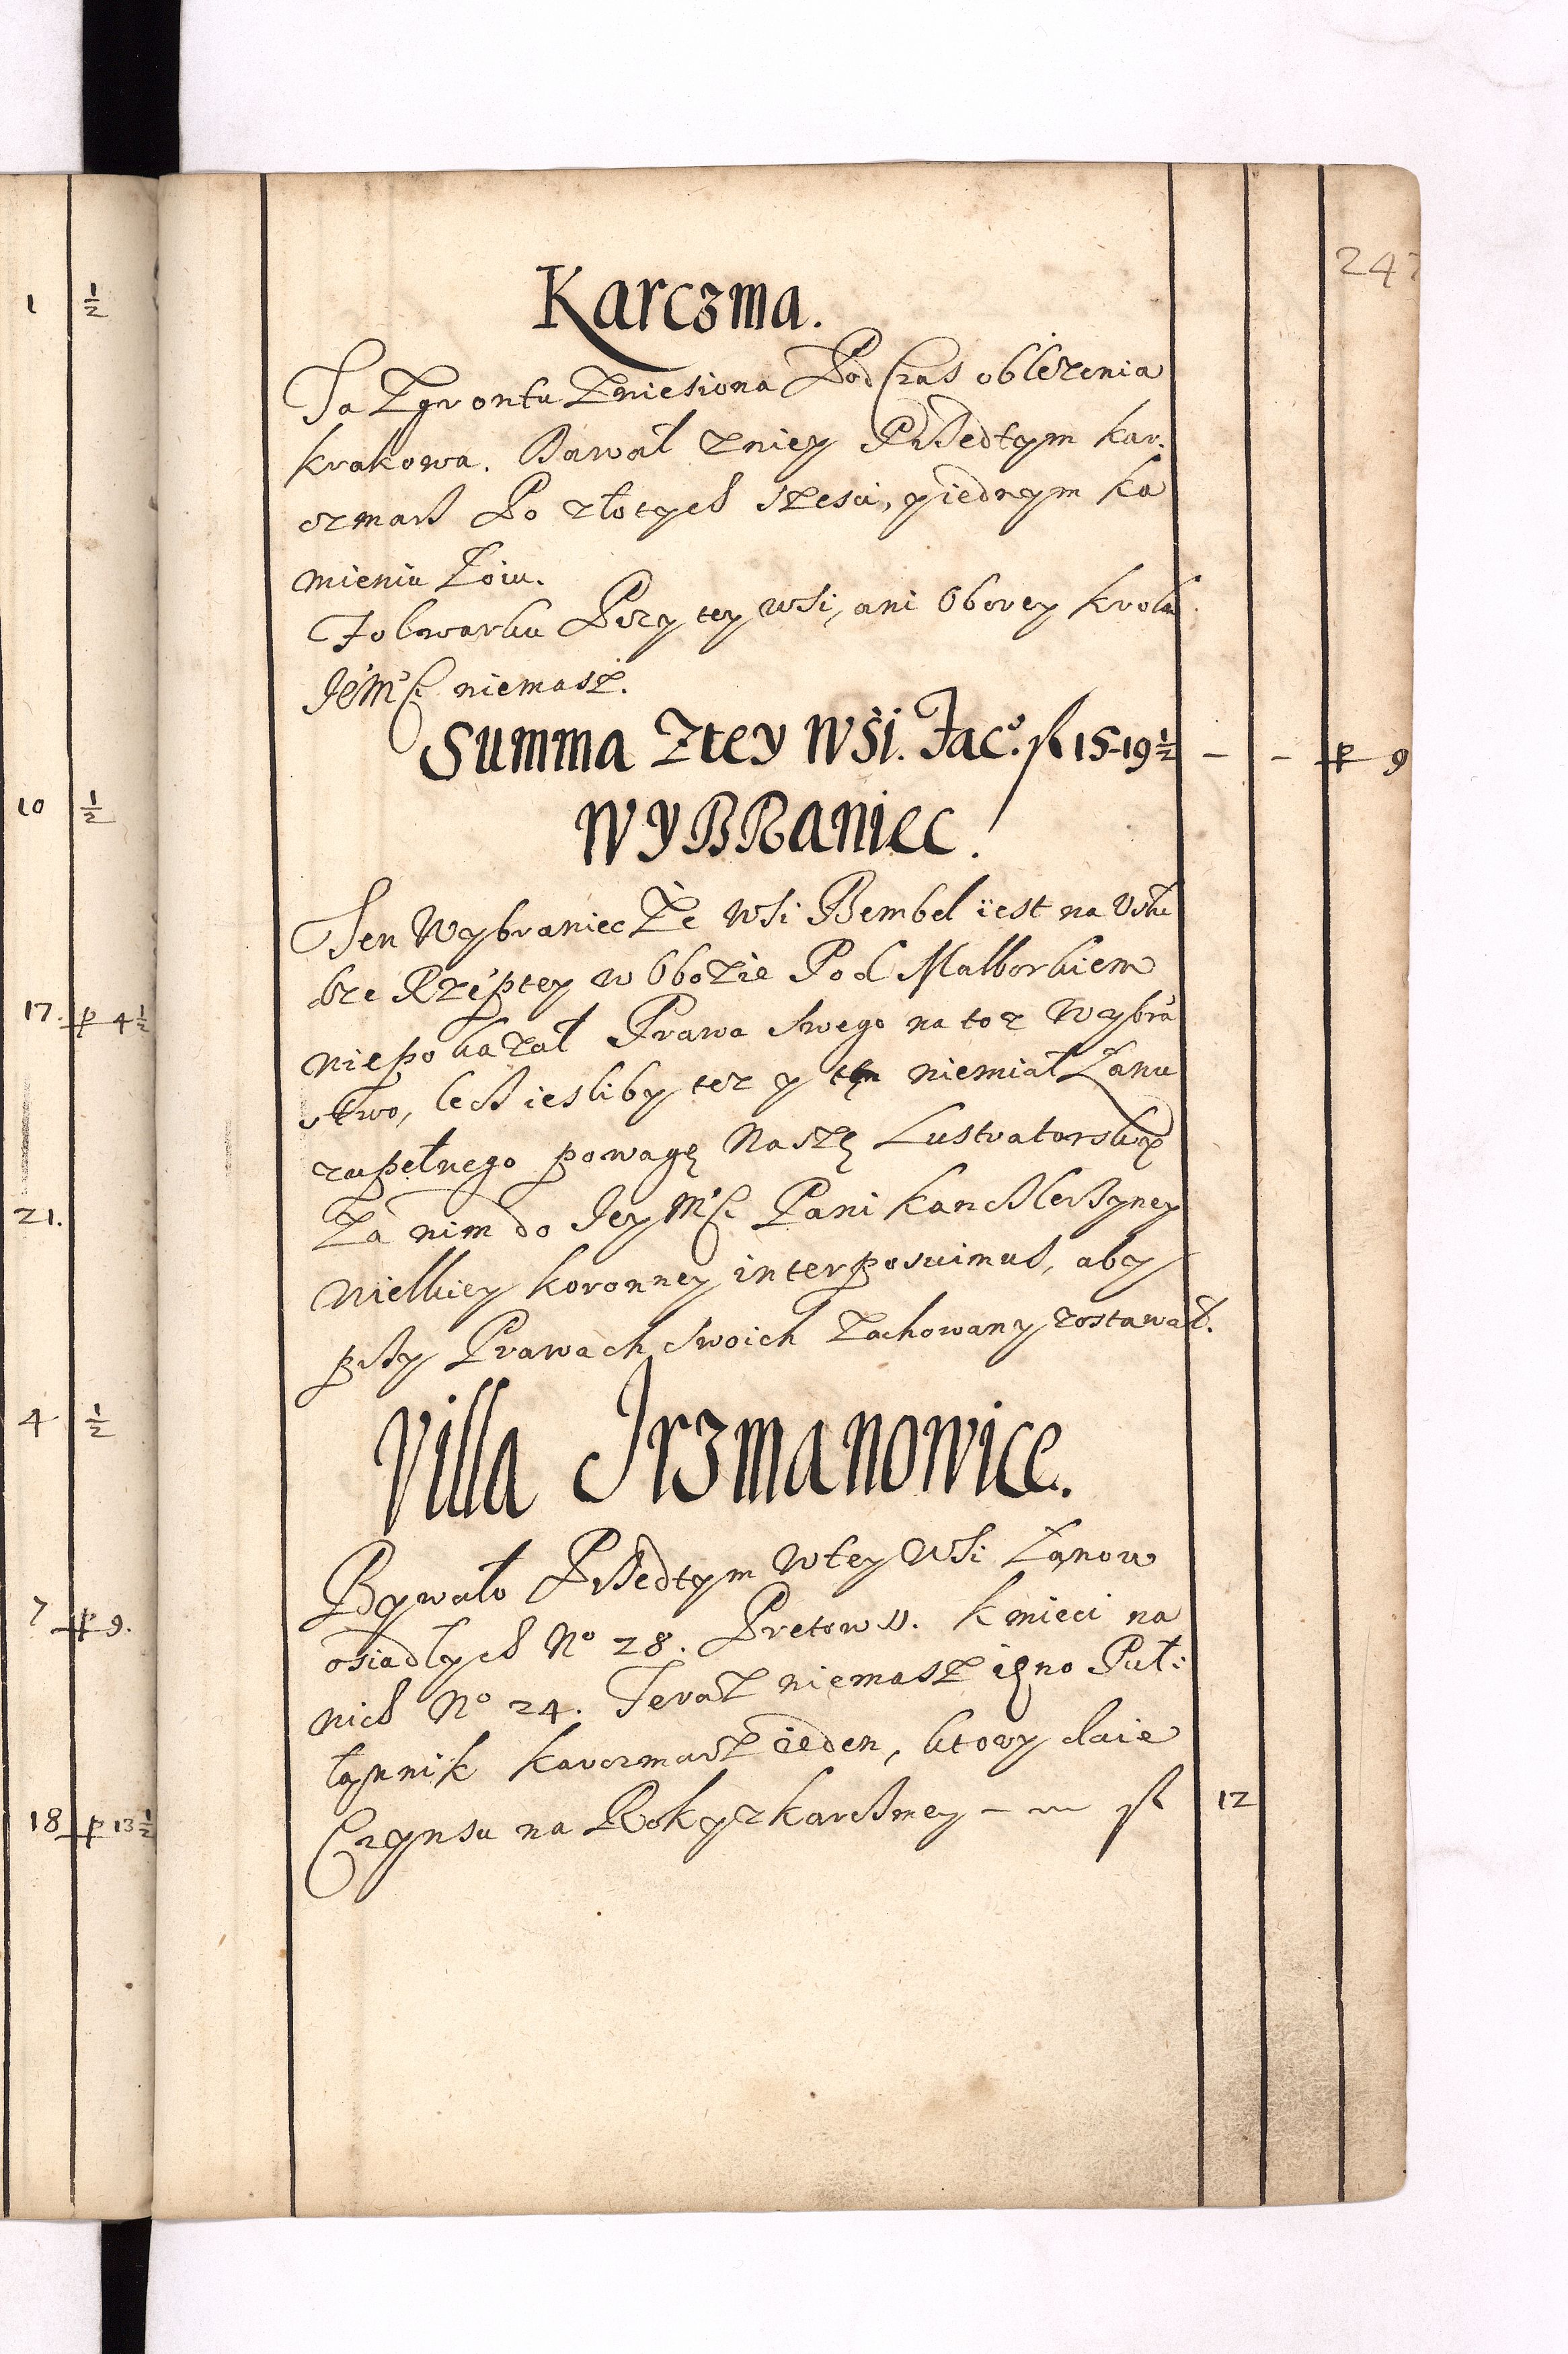 247
Karczma.
Ta Zgrontu Zniesiona PodCzas oblezenia
Krakowa. Dawał zniey Przedtym kar:
czmarz Po złotych szesci, y iednym ka
mieniu Łoiu.
Folwarku Przy tey wsi, ani Obory Krola
JeoMCi niemasz.
Summa Ztey WSi. Fac.t fl 15-19½ - - p 9
WYBRaniec.
Ten Wybraniec Ze WSi Bembel iest na Usłu
dze Rzeptey w Obozie Pod Malborkiem
niepokazał Prawa swego na toz Wybra
stwo, lecz iesliby tez y ten niemiał Łanu
zupełnego powagę Naszę Lustratorską
Za nim do Jey MCi Pani Kanclerzyney
Wielkiey Koronney interposuimus, aby
przy Prawach Swoich Zachowany zostawał.
Villa Jrzmanowice.
Bywało Przedtym Wtey WSi Łanow
osiadłych No 28. Prętow 11. Kmieci na
nich No 24. Teraz niemasz ięno Puł:
łannik Karczmarz ieden, ktory daie
Czynsu na Rok y z karczmey - fl 12
1 ½
10 ½
17. p 4½
21.
4 ½
7 p 9.
18 p 13½